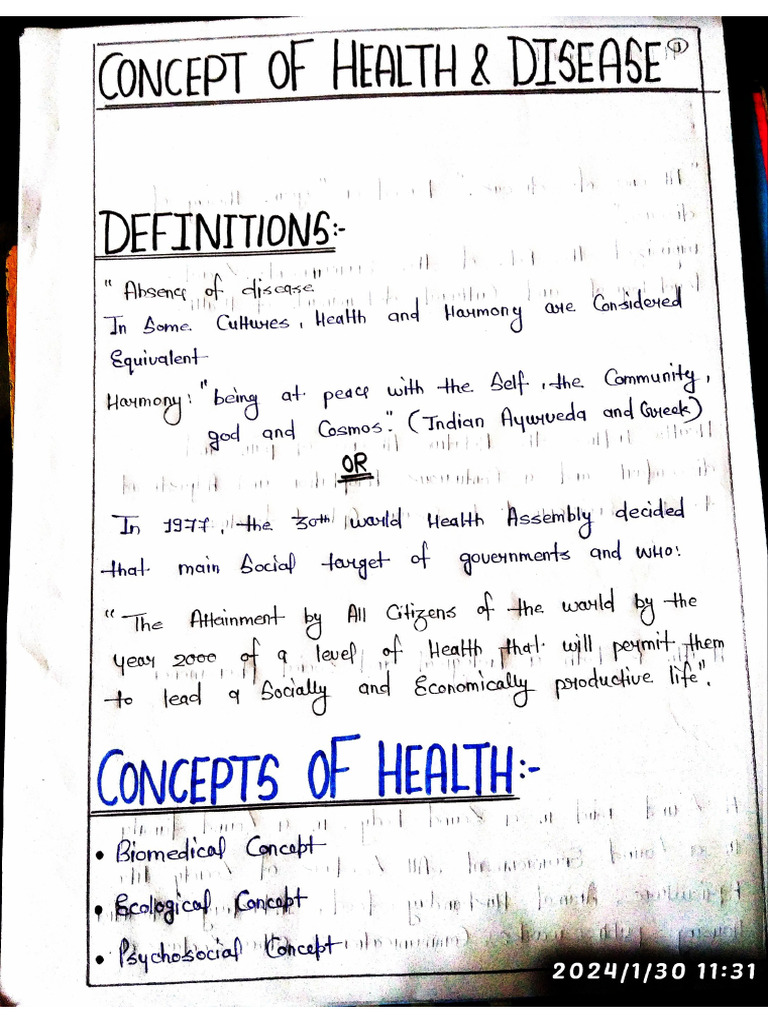 CONCEPT OF HEALTH & DISEASE ①
DEFINITIONS:-
"Absence of disease"
In Some Cultures, Health and Harmony are Considered
Equivalent
Harmony: "being at peace with the Self, the Community,
god and Cosmos." (Indian Ayurveda and Greek)
OR
In 1977, the 30th world Health Assembly decided
that main Social target of governments and WHO:
"The Attainment by All Citizens of the world by the
year 2000 of a level of Health that will permit them
to lead a Socially and Economically productive life".
CONCEPTS OF HEALTH:-
• Biomedical Concept
• Ecological Concept
• Psychosocial Concept
2024/1/30 11:31